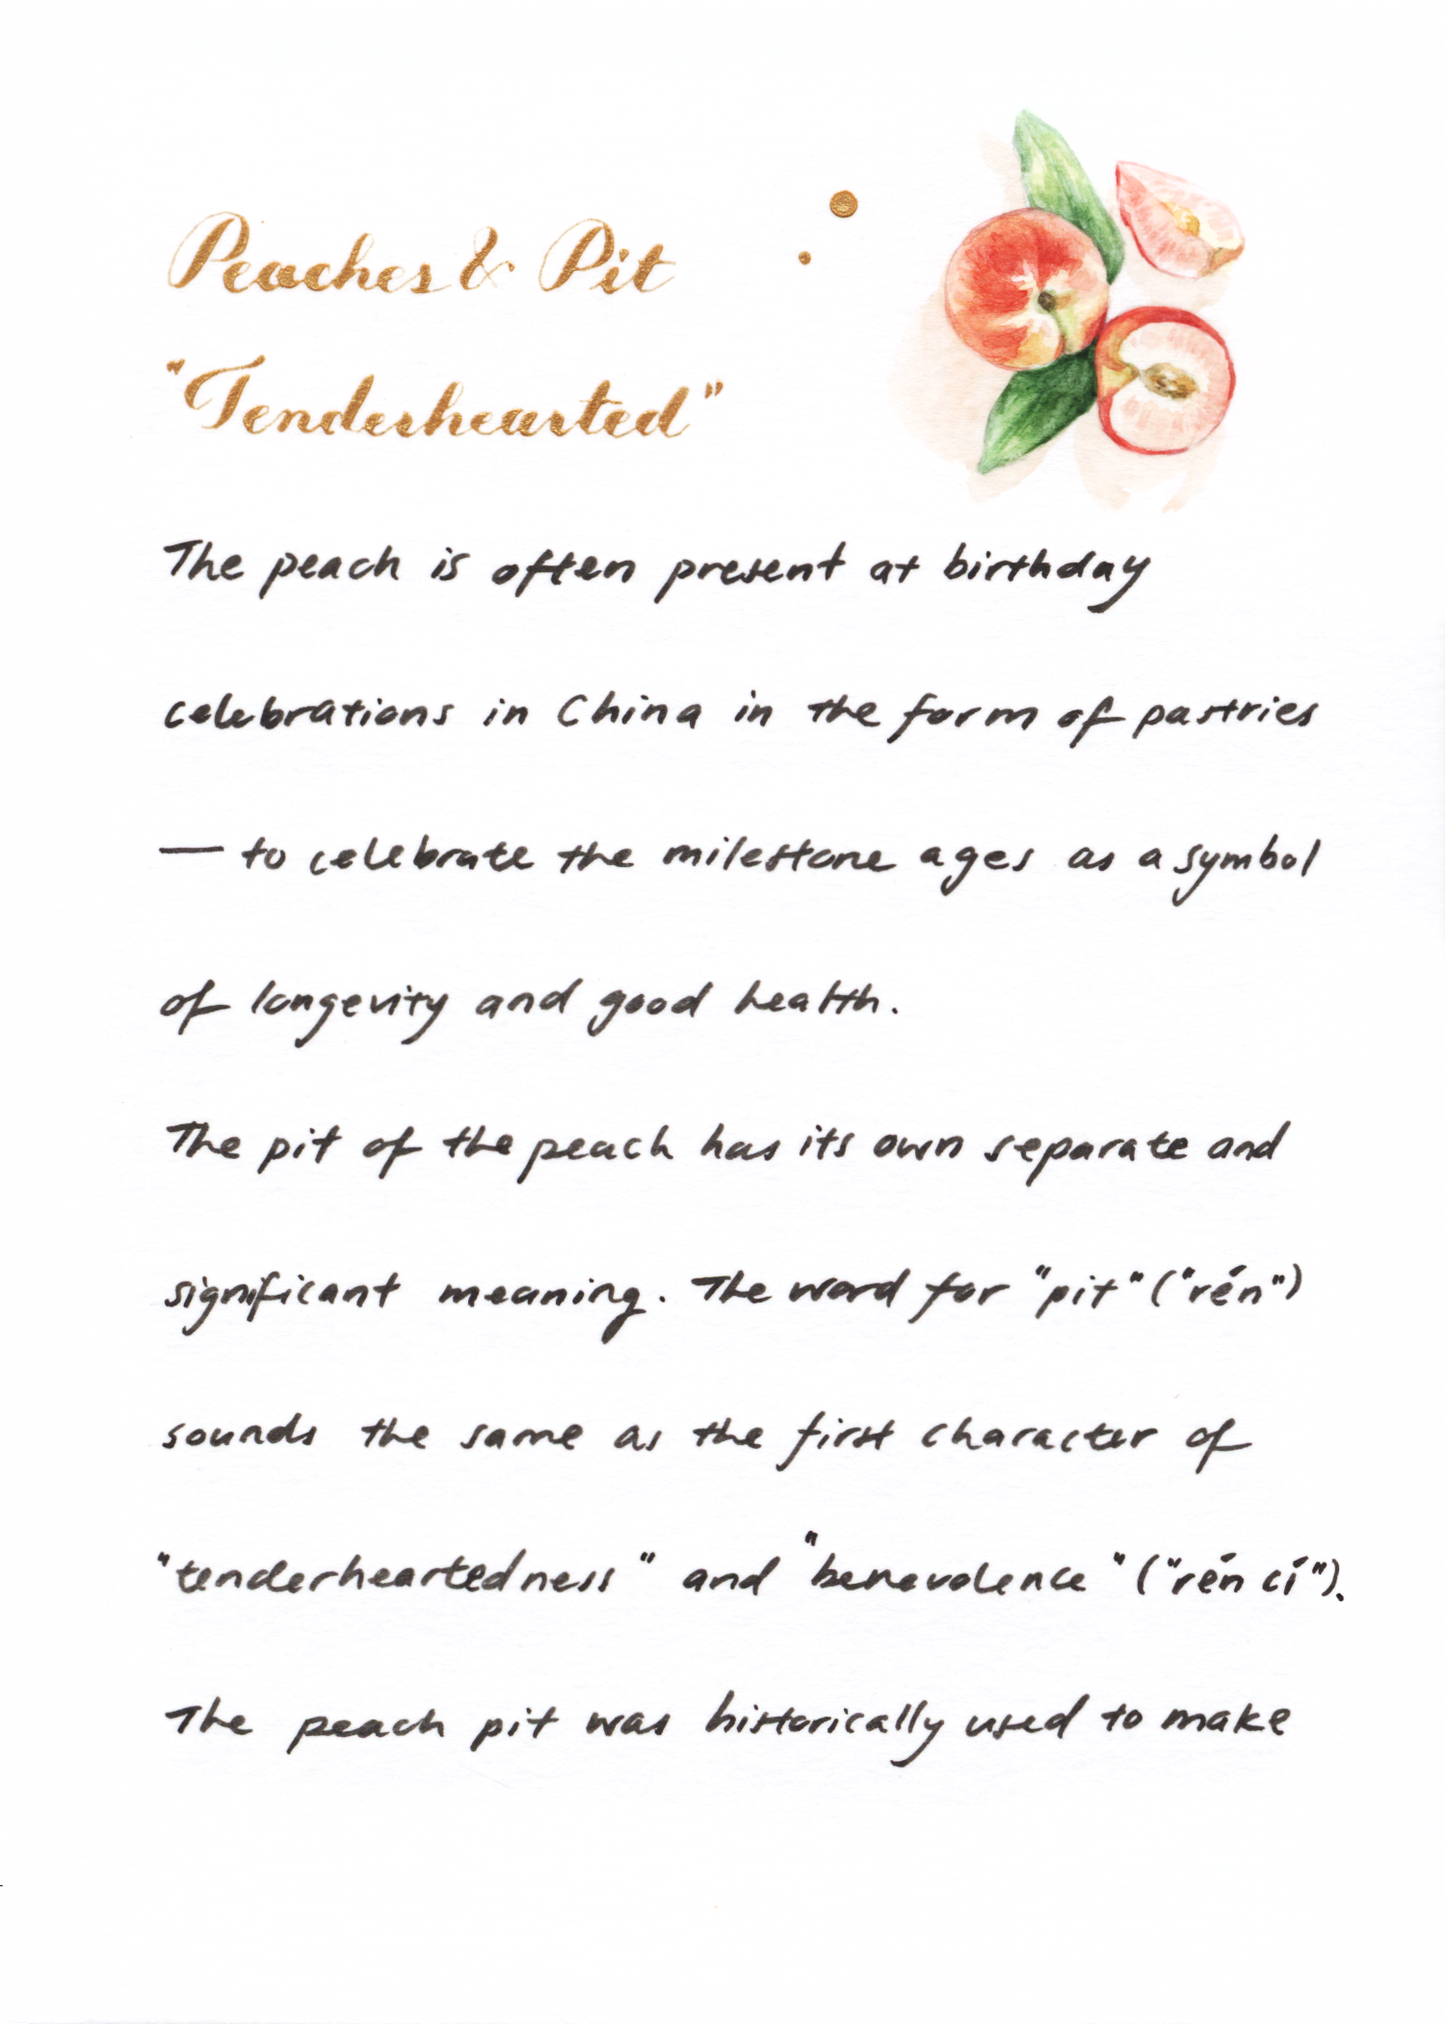 Peaches & Pit
"Tenderhearted"
The peach is often present at birthday
celebrations in China in the form of pastries
— to celebrate the milestone ages as a symbol
of longevity and good health.
The pit of the peach has its own separate and
significant meaning. The word for "pit" ("rén")
sounds the same as the first character of
"tenderheartedness" and "benevolence" ("rén cí").
The peach pit was historically used to make